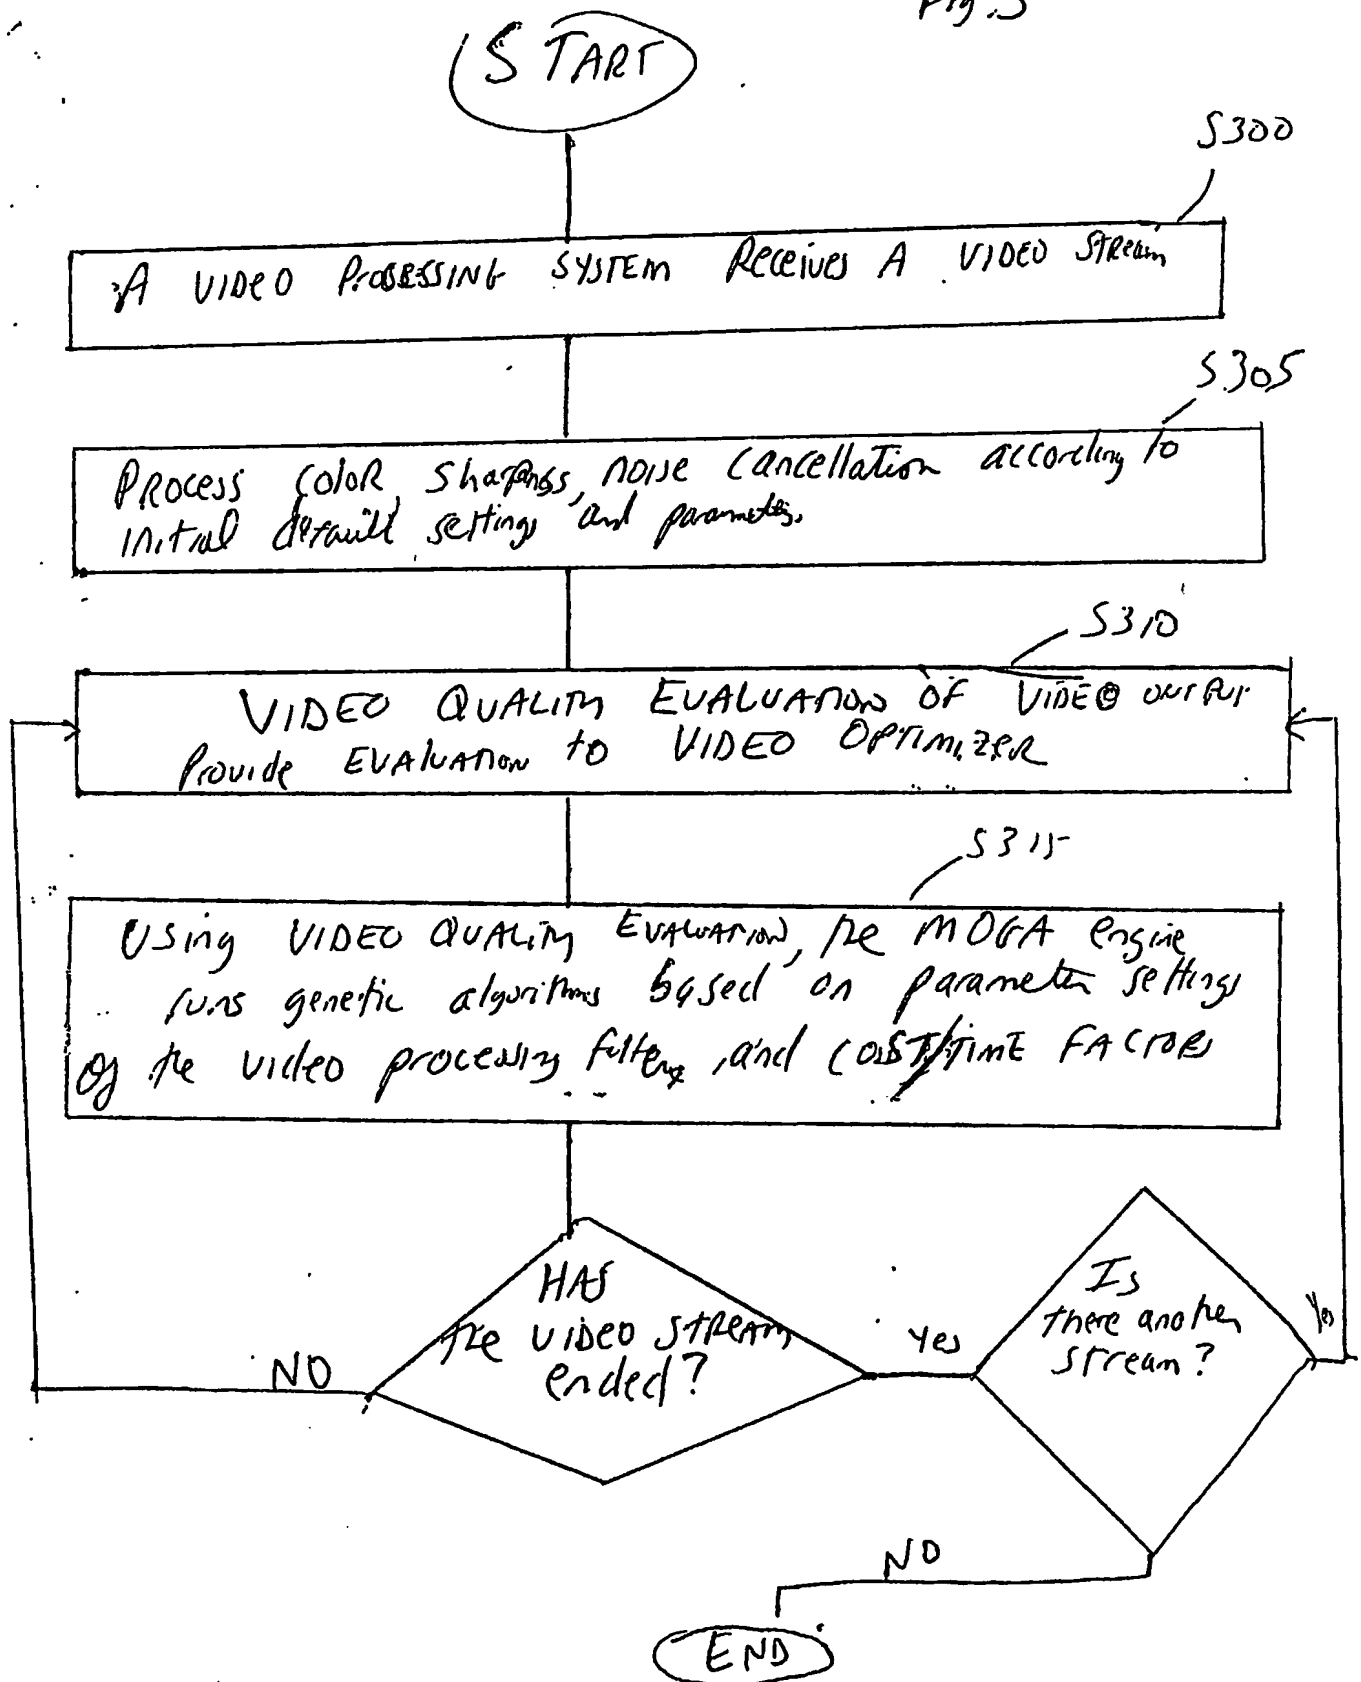 Fig. 3
START
S300
A VIDEO PROSESSING SYSTEM Receives A VIDEO STReam
S305
PROCESS COLOR, Sharpness, noise Cancellation according to
initial default settings and parameters
S310
VIDEO QUALITY EVALUATION OF VIDEO OUTPUT
Provide EVALUATION to VIDEO OPTIMIZER
S315
USing VIDEO QUALITY EVALUATION, the MOGA engine
runs genetic algorithms based on parameter settings
of the video processing filters, and COST/TIME FACTORS
HAS
the VIDEO STREAM
ended?
NO
Yes
Is
there another
stream?
Yes
NO
END